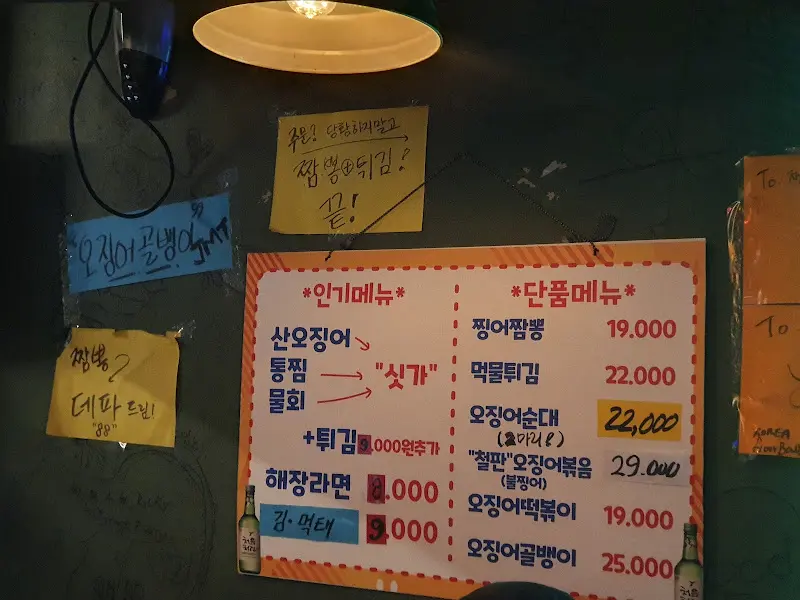 주문? 당황하지말고
짬뽕+튀김?
끝!
"오징어골뱅이"
JMT
짬뽕?
데파드림!
"88"
*인기메뉴*
산오징어
통찜
물회
"싯가"
+튀김 9.000원추가
해장라면 8.000
김·먹태 9.000
*단품메뉴*
찡어짬뽕 19.000
먹물튀김 22.000
오징어순대 22,000
(2마리)
"철판"오징어볶음 29.000
(불찡어)
오징어떡볶이 19.000
오징어골뱅이 25.000
처음처럼
To.
To
KOREA